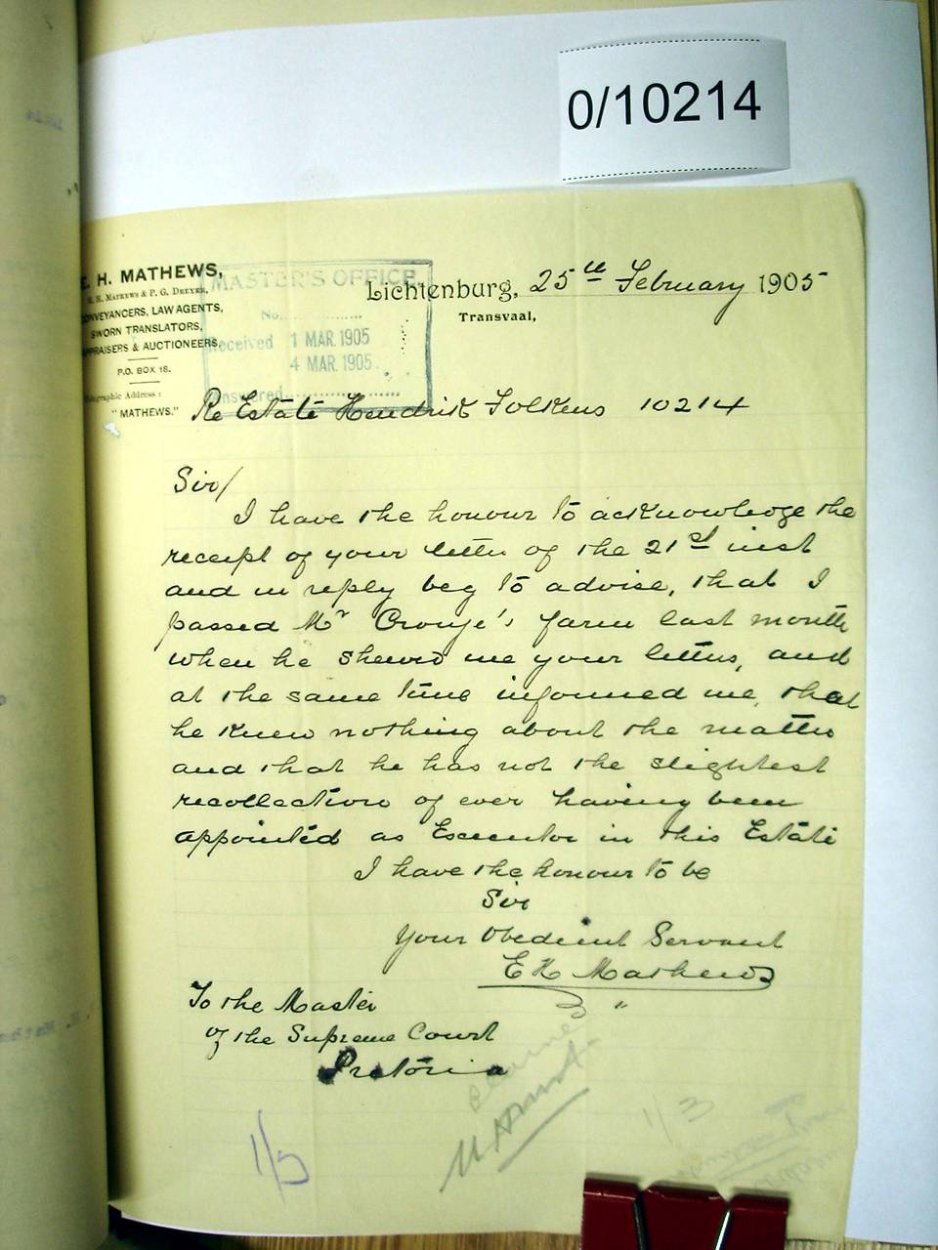 0/10214
E. H. MATHEWS,
E. H. MATHEWS & P. G. DREYER,
CONVEYANCERS, LAW AGENTS,
SWORN TRANSLATORS,
APPRAISERS & AUCTIONEERS.
P.O. BOX 18.
Telegraphic Address:
"MATHEWS."
MASTER'S OFFICE
No.
Received 1 MAR. 1905
4 MAR. 1905
Answered
Lichtenburg, 25th February 1905
Transvaal,
Re Estate Hendrik Folkens 10214
Sir/
I have the honour to acknowledge the
receipt of your letter of the 21st inst
and in reply beg to advise, that I
passed Mr Cronje's farm last month
when he shewed me your letters, and
at the same time informed me, that
he knew nothing about the matter
and that he has not the slightest
recollection of ever having been
appointed as Executor in this Estate
I have the honour to be
Sir
Your Obedient Servant
E H Mathews
To the Master
of the Supreme Court
Pretoria
1/3
1/3